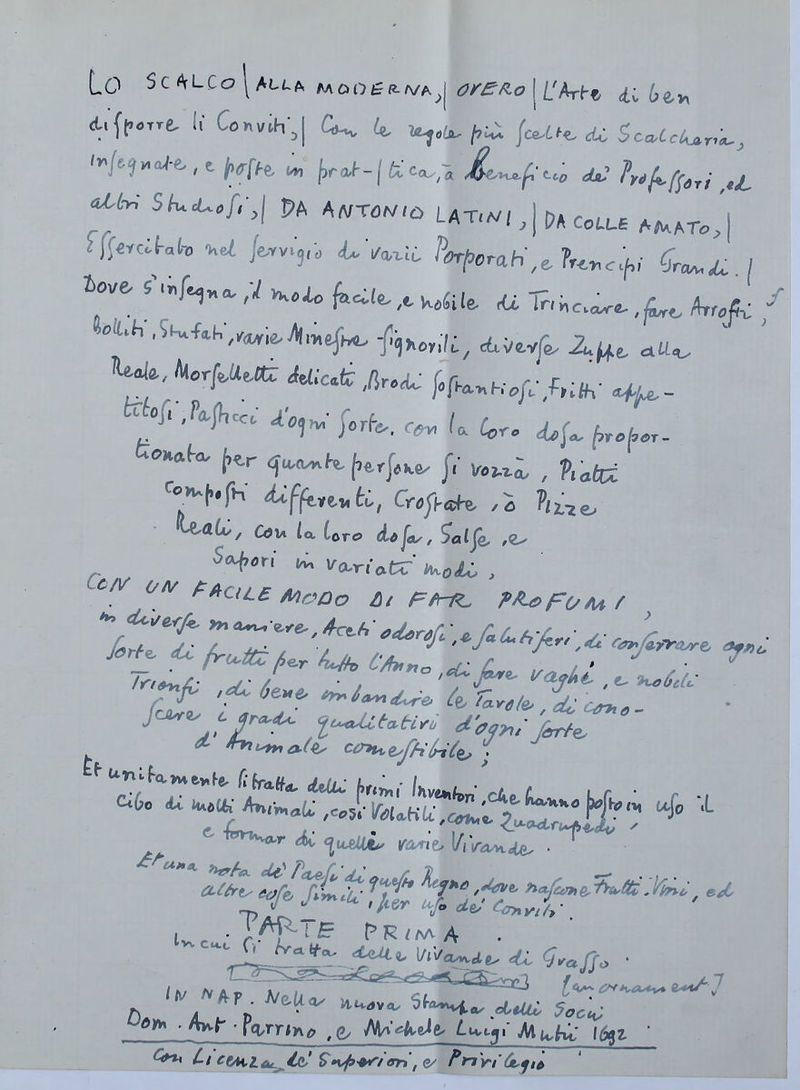 LO SCALCO | ALLA MODERNA, | OVERO | L'Arte di ben
diſporre li Conviti, | Con le regole più ſcelte di Scalcheria,
inſegnate, e poſte in prat- | tica, à Beneficio de' Profeſſori, ed
altri Studioſi, | DA ANTONIO LATINI, | DA COLLE AMATO, |
Eſſercitato nel ſervigio di varii Porporati, e Prencipi Grandi. |
Dove s'inſegna, il modo facile, e nobile di Trinciare, fare Arroſti,
Bolliti, Stufati, varie Mineſtre ſignorili, diverſe Zuppe alla
Reale, Morſelletti delicati, Brodi ſoſtantioſi, Fritti appe-
titoſi, Paſticci d'ogni ſorte, con la loro doſa propor-
tionata per quante perſone ſi vozzà, Piatti
compoſti differenti, Croſtate, ò Pizze
Reali, con la loro doſa, Salſe, e
Sapori in variati modi,
CON UN FACILE MODO DI FAR PROFUMI,
in diverſe maniere, Aceti odoroſi, e ſalutiferi, di conſervare ogni
ſorte di frutti per tutto l'Anno, di fare vaghi, e nobili
Trionfi, di bene imbandire le Tavole, di cono-
ſcere i gradi qualitativi d'ogni ſorte
d'Animale comeſtibile;
Et unitamente ſi tratta delli primi Inventori, che hanno poſto in uſo il
Cibo di molti Animali, così Volatili, come Quadrupedi,
e formar di quelli varie Vivande.
Et una nota de' Paeſi di queſto Regno, dove naſcono Frutti, Vini, ed
altre coſe ſimili, per uſo de' Conviti.
PARTE PRIMA.
In cui ſi tratta delle Vivande di Graſſo.
[an ornament]
IN NAP. Nella nuova Stampa delli Socii
Dom. Ant. Parrino, e Michele Luigi Mutii 1692
Con Licenza de' Superiori, e Privilegio